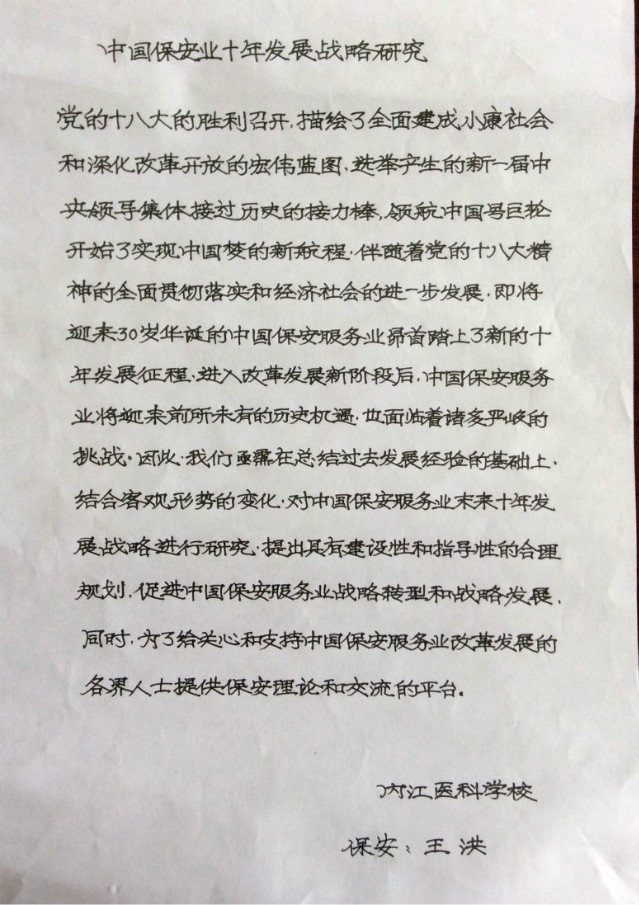 中国保安业十年发展战略研究
党的十八大的胜利召开,描绘了全面建成小康社会
和深化改革开放的宏伟蓝图,选举产生的新一届中
央领导集体接过历史的接力棒,领航中国号巨轮
开始了实现中国梦的新航程.伴随着党的十八大精
神的全面贯彻落实和经济社会的进一步发展,即将
迎来30岁华诞的中国保安服务业昂首踏上了新的十
年发展征程.进入改革发展新阶段后,中国保安服务
业将迎来前所未有的历史机遇.也面临着诸多严峻的
挑战。因此.我们亟需在总结过去发展经验的基础上.
结合客观形势的变化.对中国保安服务业未来十年发
展战略进行研究.提出具有建设性和指导性的合理
规划,促进中国保安服务业战略转型和战略发展.
同时,为了给关心和支持中国保安服务业改革发展的
各界人士提供保安理论和交流的平台。
内江医科学校
保安:王洪